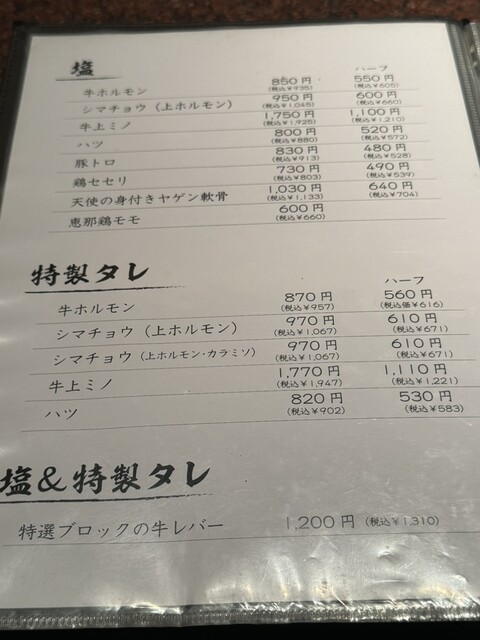 塩 ハーフ
牛ホルモン 850円 (税込¥935) 550円 (税込¥605)
シマチョウ（上ホルモン） 950円 (税込¥1,045) 600円 (税込¥660)
牛上ミノ 1,750円 (税込¥1,925) 1,100円 (税込¥1,210)
ハツ 800円 (税込¥880) 520円 (税込¥572)
豚トロ 830円 (税込¥913) 480円 (税込¥528)
鶏セセリ 730円 (税込¥803) 490円 (税込¥539)
天使の身付きヤゲン軟骨 1,030円 (税込¥1,133) 640円 (税込¥704)
恵那鶏モモ 600円 (税込¥660)
特製タレ ハーフ
牛ホルモン 870円 (税込¥957) 560円 (税込価¥616)
シマチョウ（上ホルモン） 970円 (税込¥1,067) 610円 (税込¥671)
シマチョウ（上ホルモン・カラミソ） 970円 (税込¥1,067) 610円 (税込¥671)
牛上ミノ 1,770円 (税込¥1,947) 1,110円 (税込¥1,221)
ハツ 820円 (税込¥902) 530円 (税込¥583)
塩＆特製タレ
特選ブロックの牛レバー 1,200円 (税込¥1,310)